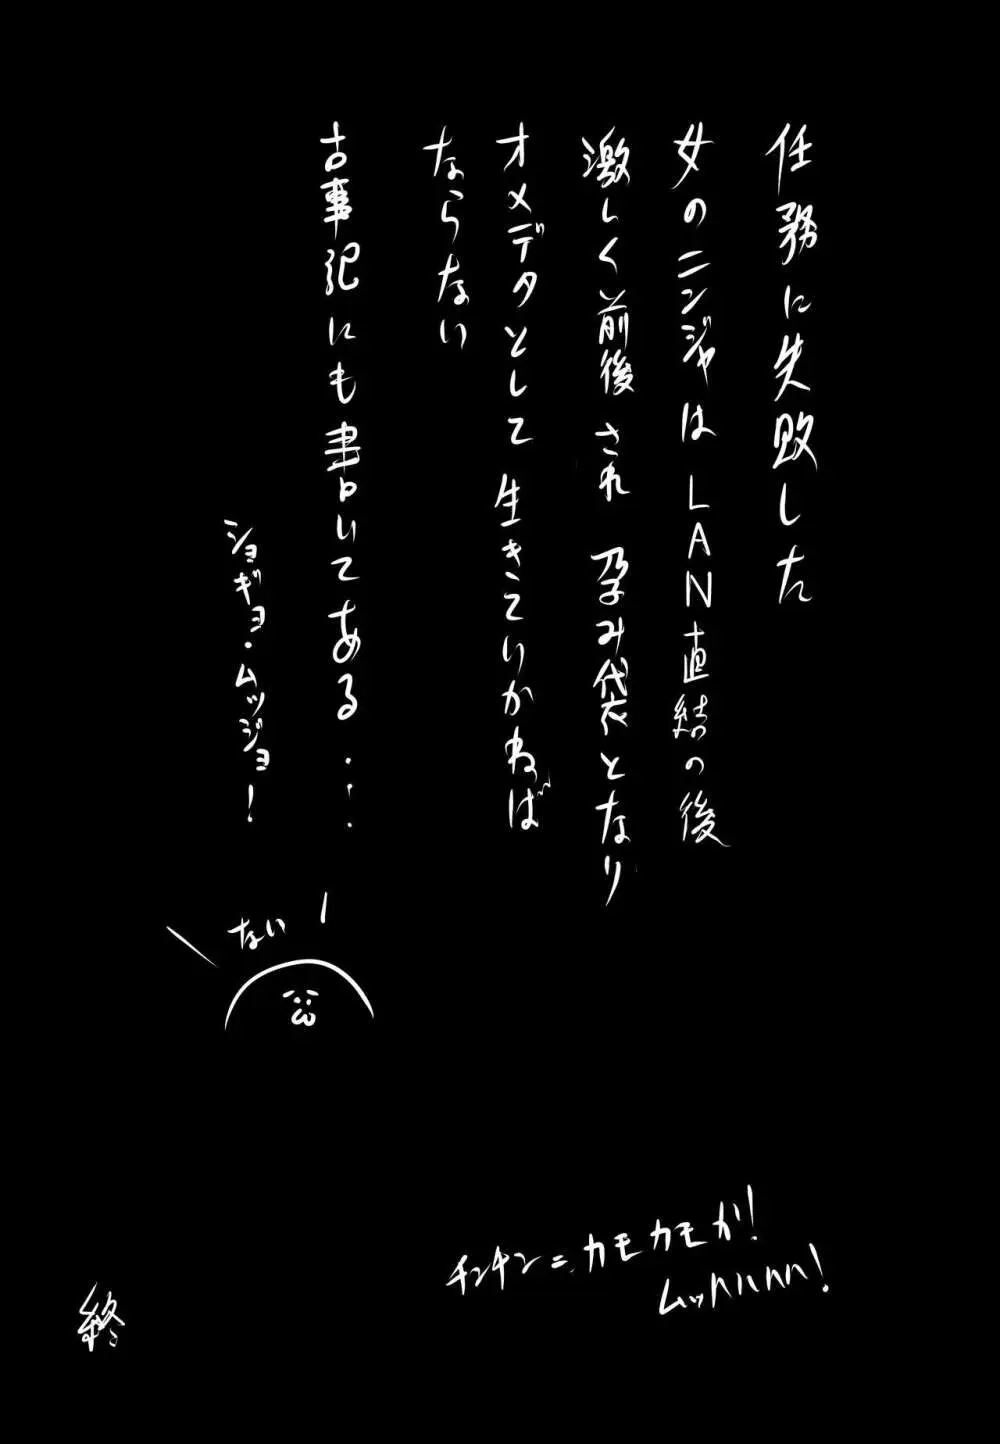 任務に失敗した
女のニンジャはLAN直結の後
激しく前後され 孕み袋となり
オメデタとして生きていかねば
ならない
古事記にも書いてある・・・
ショギョ・ムッジョ!
ない
チンチンニ、カモカモか!
ムッハハハハ!
終